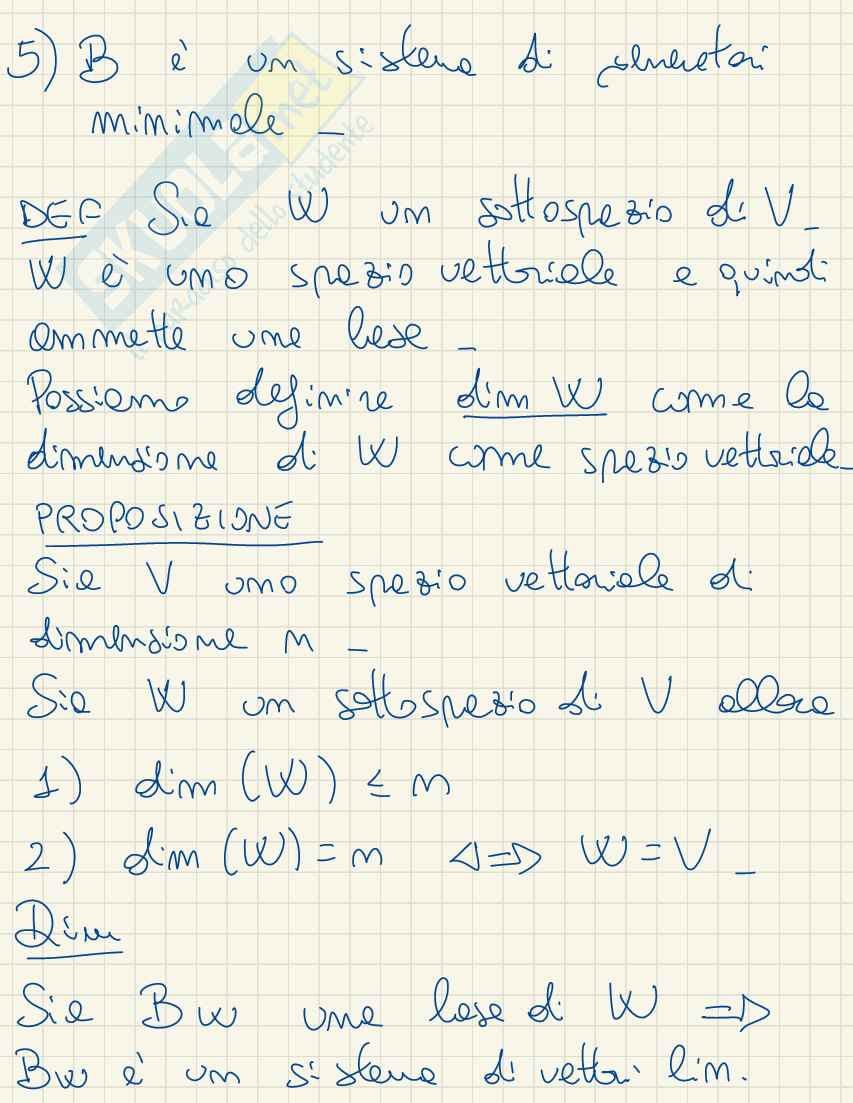 5) B è un sistema di generatori
minimale _
DEF Sia W un sottospazio di V _
W è uno spazio vettoriale e quindi
ammette una base _
Possiamo definire dim W come la
dimensione di W come spazio vettoriale _
PROPOSIZIONE
Sia V uno spazio vettoriale di
dimensione n _
Sia W un sottospazio di V allora
1) dim (W) ≤ n
2) dim (W) = n <=> W = V _
Dim
Sia Bw una base di W =>
Bw è un sistema di vettori lin.
SKUOLA.net
il paradiso dello studente